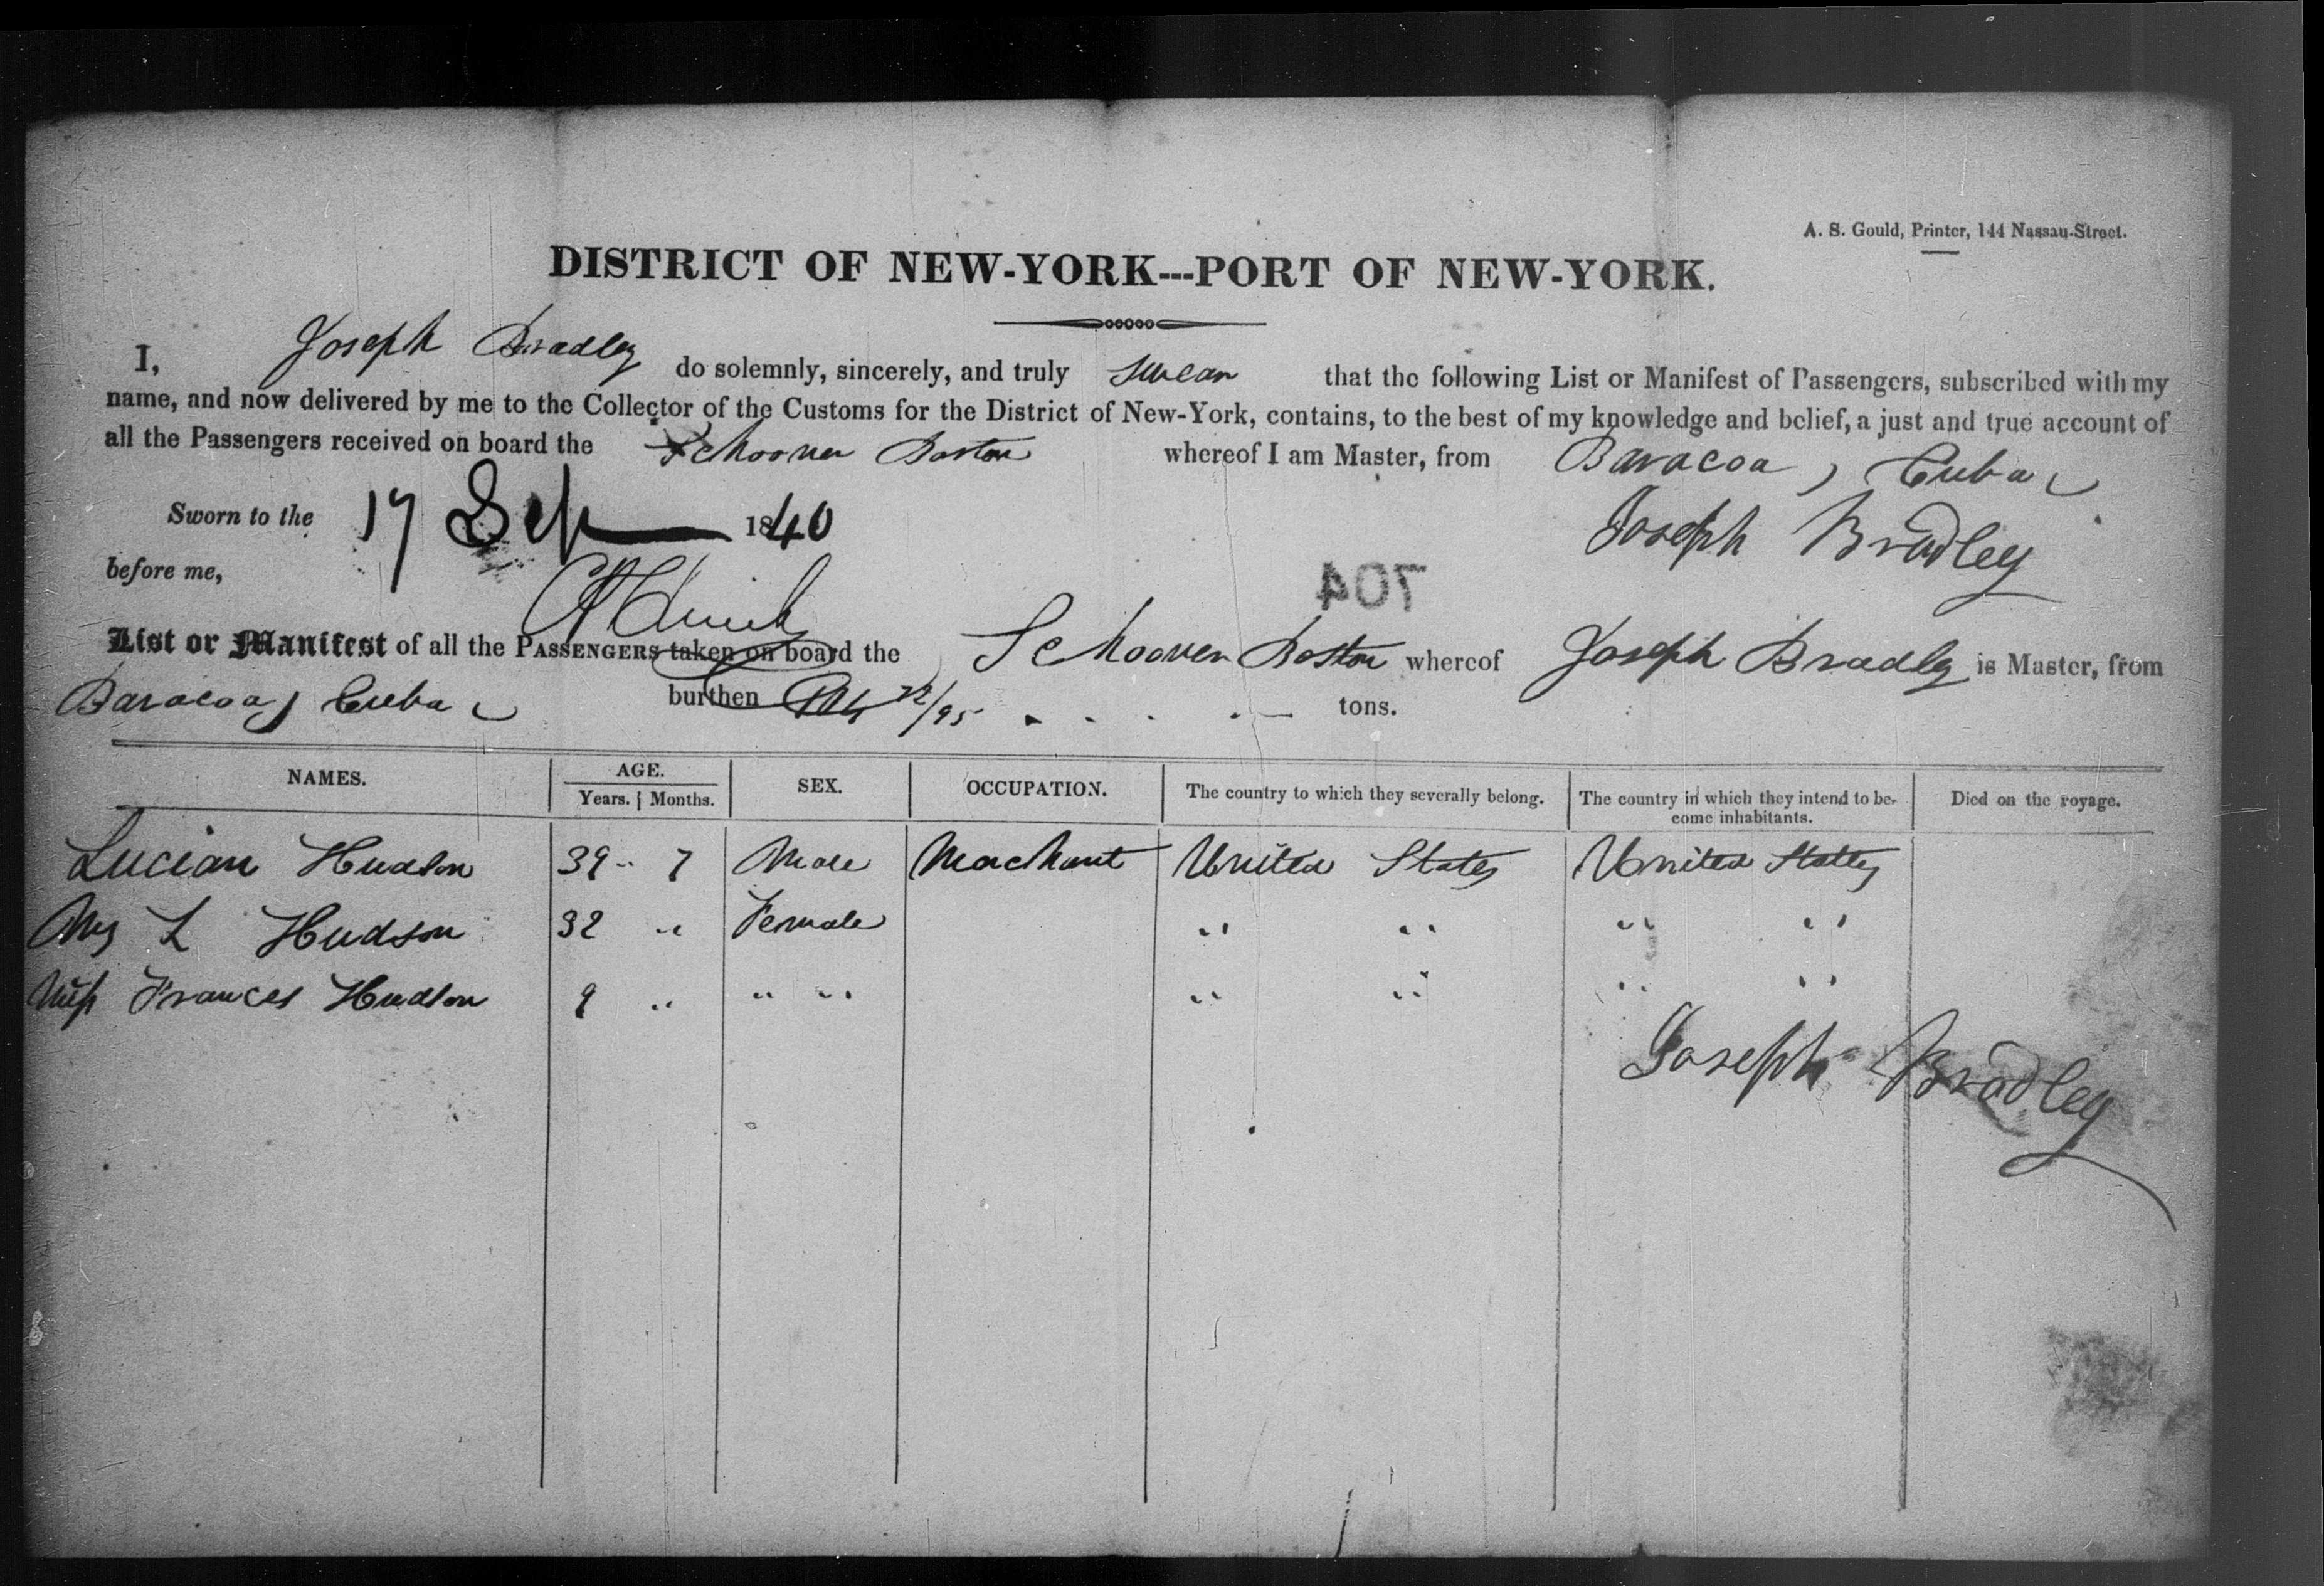 A. S. Gould, Printer, 144 Nassau-Street.
DISTRICT OF NEW-YORK---PORT OF NEW-YORK.
I, Joseph Bradley do solemnly, sincerely, and truly swear that the following List or Manifest of Passengers, subscribed with my
name, and now delivered by me to the Collector of the Customs for the District of New-York, contains, to the best of my knowledge and belief, a just and true account of
all the Passengers received on board the Schooner Boston whereof I am Master, from Baracoa, Cuba
Sworn to the 17 Sep 1840
Joseph Bradley
before me,
704
List or Manifest of all the PASSENGERS taken on board the Schooner Boston whereof Joseph Bradley is Master, from
Baracoa, Cuba burthen 22/95 tons.
NAMES. AGE. Years. Months. SEX. OCCUPATION. The country to which they severally belong. The country in which they intend to become inhabitants. Died on the voyage.
Lucian Hudson 39 " 7 Male Merchant United States United States
Mrs L Hudson 32 " Female " " " "
Miss Frances Hudson 9 " " " " " " "
Joseph Bradley